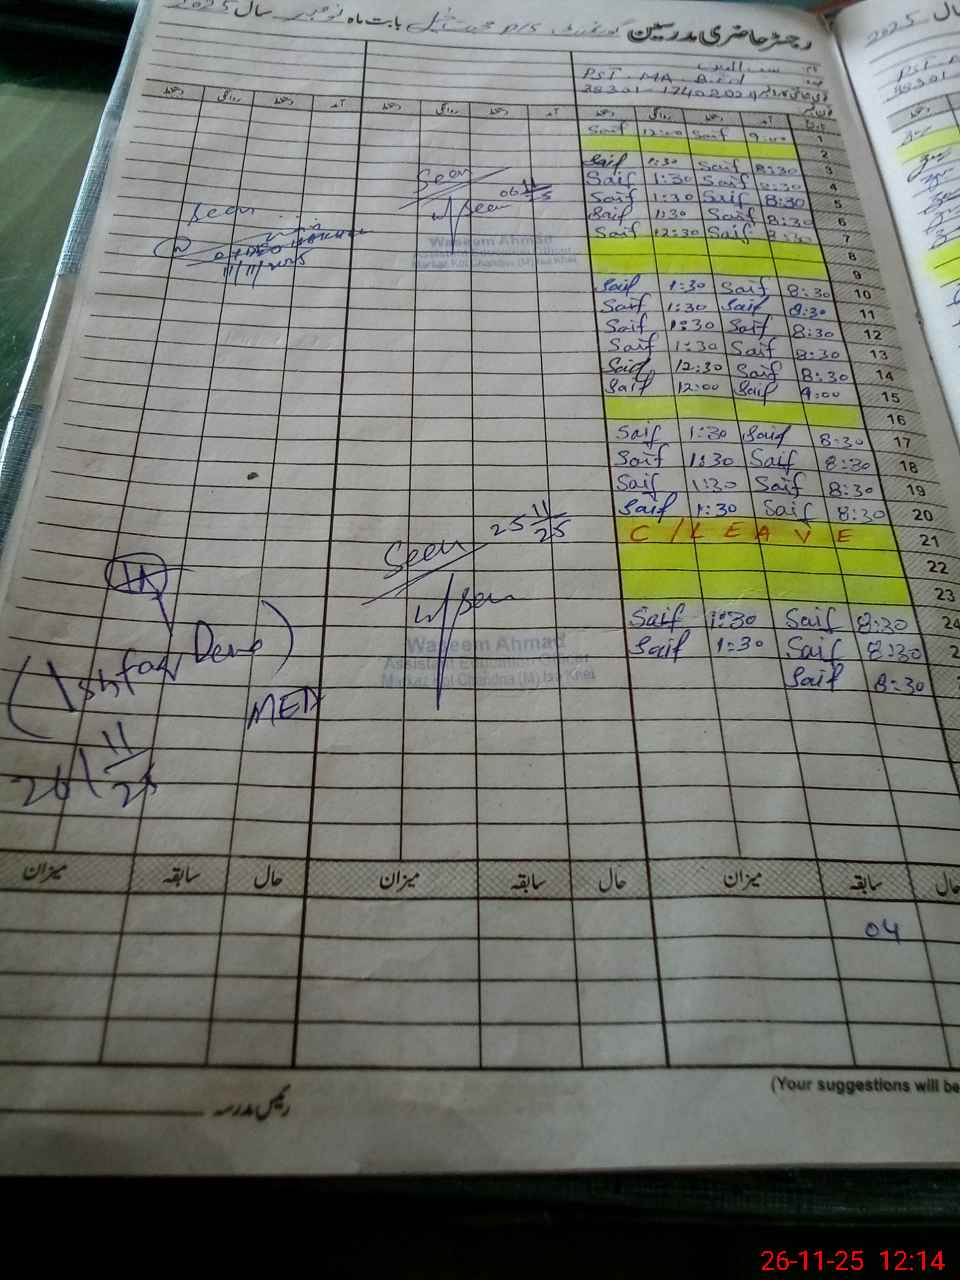 رجسٹر حاضری مدرسین گورنمنٹ P/S بابت ماہ نومبر سال 2025
نام
PST. MA. B.Ed
38301-1740202
دستخط روانگی دستخط آمد دستخط روانگی دستخط آمد دستخط روانگی دستخط آمد
Saif 12:00 Saif 9:00 1
2
Saif 1:30 Saif 8:30 3
Saif 1:30 Saif 8:30 4
Saif 1:30 Saif 8:30 5
Saif 1:30 Saif 8:30 6
Saif 12:30 Saif 8:30 7
8
9
Saif 1:30 Saif 8:30 10
Saif 1:30 Saif 8:30 11
Saif 1:30 Saif 8:30 12
Saif 1:30 Saif 8:30 13
Saif 12:30 Saif 8:30 14
Saif 12:00 Saif 9:00 15
16
Saif 1:30 Saif 8:30 17
Saif 1:30 Saif 8:30 18
Saif 1:30 Saif 8:30 19
Saif 1:30 Saif 8:30 20
C/LEAVE 21
22
23
Saif 1:30 Saif 8:30 24
Saif 1:30 Saif 8:30 2
Saif 8:30
Seen
06 11/25
Waseem Ahmad
Seen
11/11/2025
Seen 25 11/25
Waseem Ahmad
Assistant Education Officer
Markaz Kot Chandna (M)
MEA
26 11/25
میزان سابقہ حال میزان سابقہ حال میزان سابقہ حال
04
(Your suggestions will be
رئیس مدرسہ
2025 سال
38301
26-11-25 12:14